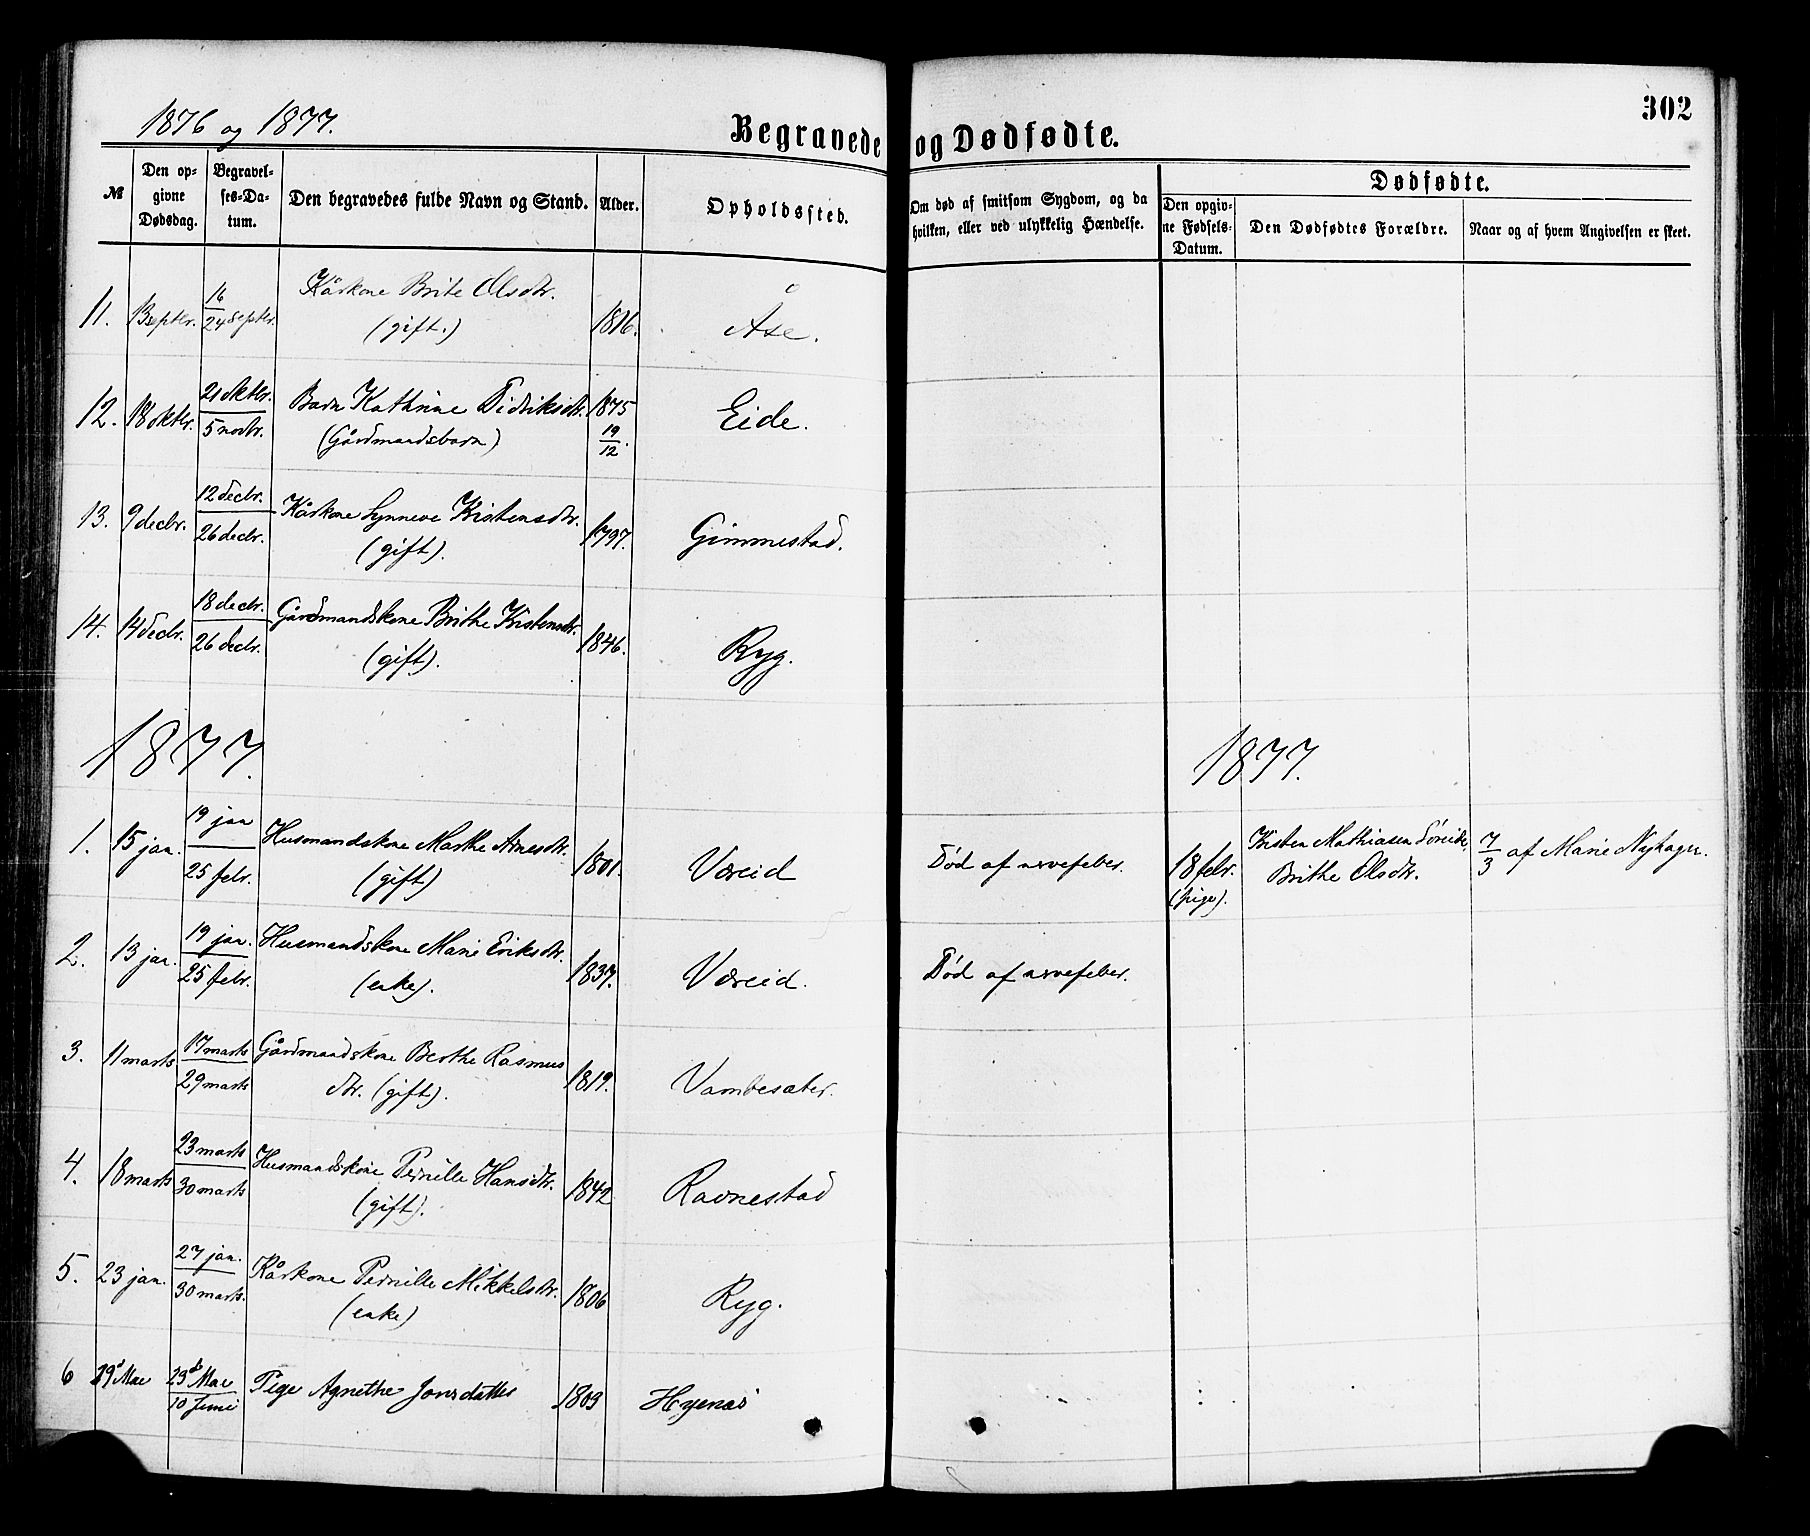 302
1876 og 1877.
Begravede og Dødfødte.
№
Den opgivne Dødsdag.
Begravelses-Datum.
Den begravedes fulde Navn og Stand.
Alder.
Opholdssted.
Om død af smitsom Sygdom, og da hvilken, eller ved ulykkelig Hændelse.
Dødfødte.
Den opgivne Fødsels-Datum.
Den Dødfødtes Forældre.
Naar og af hvem Angivelsen er skeet.
11. 13 septbr. 16/24 septbr. Kårkone Brite Olsdtr. (gift.) 1816. Åse.
12. 18 oktbr. 21 oktbr. / 5 novbr. Barn Kathrine Didriksdtr. (Gårdmandsbarn) 1875 19/12. Eide.
13. 9 decbr. 12 decbr. / 26 decbr. Kårkone Synneve Kristensdtr. (gift). 1797. Gimmestad.
14. 14 decbr. 18 decbr. / 26 decbr. Gårdmandskone Brithe Kristensdtr. (gift). 1846. Ryg.
1877. 1877.
1. 15 jan. 19 jan / 25 febr. Husmandskone Marthe Arnesdtr. (gift) 1801. Væreid Død af nervefeber. 18 febr. (pige). Kristen Mathiasen Søreide, Brithe Olsdtr. 7/3 af Marie Nyhagen.
2. 13 jan. 19 jan. / 25 febr. Husmandskone Marie Eriksdtr. (enke). 1837. Væreid. Død af nervefeber.
3. 11 marts 17 marts / 29 marts Gårdmandskone Berthe Rasmus
dtr. (gift). 1819. Vambesæter.
4. 18 marts 23 marts / 30 marts Husmandskone Pernille Hansdtr. (gift). 1842 Ravnestad
5. 23 jan. 27 jan. / 30 marts. Kårkone Pernille Mikkelsdtr. (enke) 1806 Ryg.
6 Mai 23de Mai / 10 Juni Pige Agnethe Jonsdatter 1803 Hyenæs